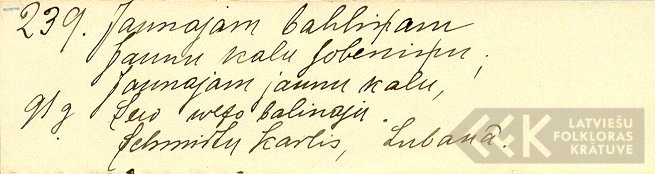 239. Jaunajam bahliņam
Jaunu kalu sobeniņu;
Jaunajam jaunu kalu,
91g Sew wezo balinaju.
Schmidtu Karlis, Lubanā.
LATVIEŠU
FOLKLORAS
KRĀTUVE